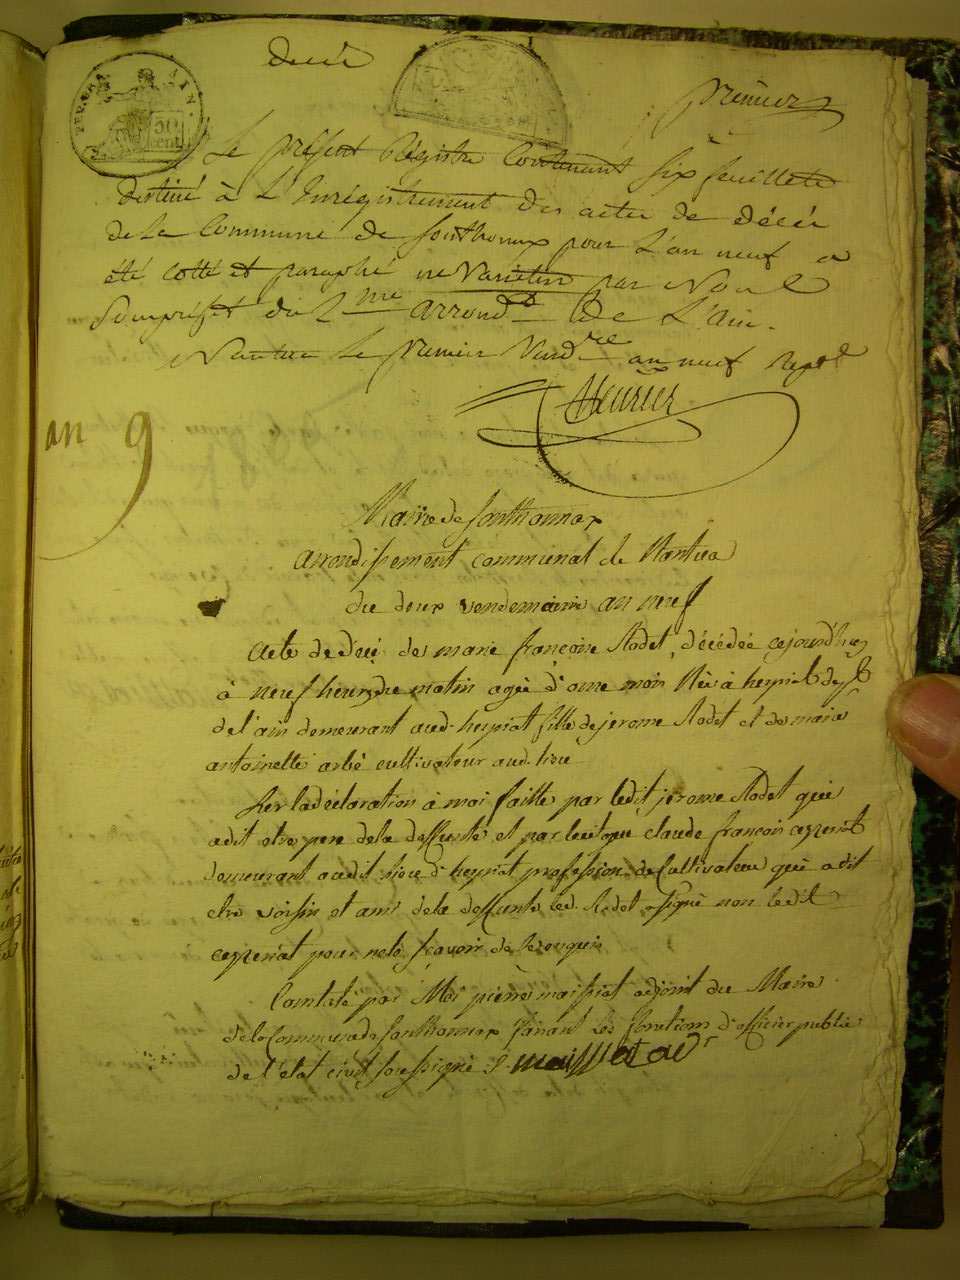 décès
premier
REP. FRA. AIN.
50 cent
Le présent Régistre Contenant six feuillets
destiné à L'Enrégistrement des actes de décès
de La Commune de Sonthonax pour L'an neuf a
été cotté et paraphé ne varietur par Nous
Sousprefet du 2me arrondt de L'ain.
Nantua Le premier Vendre an neuf Repd
an 9
Mairie de Sonthonnax
arrondissement communal de Nantua
du deux vendemaire an neuf
acte de décè de marie françoise Rodet, décédée cejourd'huy
à neuf heures du matin agée d'onne mois Née à heyriat dept
de l'ain demeurant aud. heyriat fille de jerome Rodet et de marie
antoinette arbé cultivateur aud. lieu
Sur la déclaration à moi faitte par ledit jérome Rodet qui
a dit etre pere de la deffunte et par le citoyen claude françois
demeurant audit lieu d'heyriat profession de Cultivateur qui a dit
etre voisin et ami de la deffunte led. Rodet a signé non ledit
pour ne le sçavoir de ce enquis
Constaté par Moi pierre maissiat adjoint du Maire
de la Commune de Sonthonnax faisant les fonctions d'officier public
de l'état civil soussigné P. maissiat adt